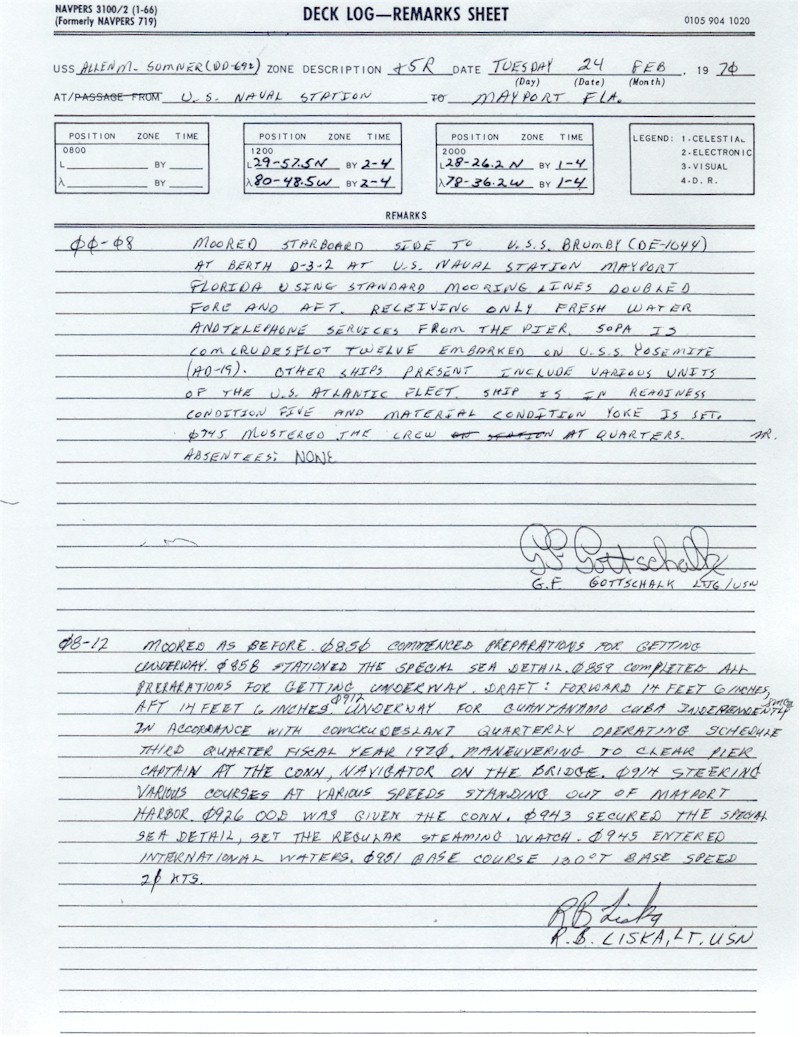 NAVPERS 3100/2 (1-66)
(Formerly NAVPERS 719)
DECK LOG—REMARKS SHEET
0105 904 1020
USS ALLEN M. SUMNER (DD-692) ZONE DESCRIPTION +5R DATE TUESDAY 24 FEB , 19 7Ø
(Day) (Date) (Month)
AT/PASSAGE FROM U.S. NAVAL STATION TO MAYPORT FLA.
POSITION ZONE TIME
0800
L BY
λ BY
POSITION ZONE TIME
1200
L 29-57.5N BY 2-4
λ 80-48.5W BY 2-4
POSITION ZONE TIME
2000
L 28-26.2N BY 1-4
λ 78-36.2W BY 1-4
LEGEND: 1-CELESTIAL
2-ELECTRONIC
3-VISUAL
4-D. R.
REMARKS
ØØ-Ø8 MOORED STARBOARD SIDE TO U.S.S. BRUMBY (DE-1044)
AT BERTH D-3-2 AT U.S. NAVAL STATION MAYPORT
FLORIDA USING STANDARD MOORING LINES DOUBLED
FORE AND AFT. RECEIVING ONLY FRESH WATER
AND TELEPHONE SERVICES FROM THE PIER. SOPA IS
COMCRUDESFLOT TWELVE EMBARKED ON U.S.S. YOSEMITE
(AD-19). OTHER SHIPS PRESENT INCLUDE VARIOUS UNITS
OF THE U.S. ATLANTIC FLEET. SHIP IS IN READINESS
CONDITION FIVE AND MATERIAL CONDITION YOKE IS SET.
Ø745 MUSTERED THE CREW ON STATION AT QUARTERS.
ABSENTEES: NONE
G.F. Gottschalk
G.F. GOTTSCHALK LTJG/USN
Ø8-12 MOORED AS BEFORE. Ø85Ø COMMENCED PREPARATIONS FOR GETTING
UNDERWAY. Ø858 STATIONED THE SPECIAL SEA DETAIL. Ø859 COMPLETED ALL
PREPARATIONS FOR GETTING UNDERWAY. DRAFT: FORWARD 14 FEET 6 INCHES,
AFT 14 FEET 6 INCHES. Ø912 UNDERWAY FOR GUANTANAMO CUBA INDEPENDENTLY
IN ACCORDANCE WITH COMCRUDESLANT QUARTERLY OPERATING SCHEDULE
THIRD QUARTER FISCAL YEAR 197Ø. MANEUVERING TO CLEAR PIER
CAPTAIN AT THE CONN, NAVIGATOR ON THE BRIDGE. Ø914 STEERING
VARIOUS COURSES AT VARIOUS SPEEDS STANDING OUT OF MAYPORT
HARBOR. Ø926 OOD WAS GIVEN THE CONN. Ø943 SECURED THE SPECIAL
SEA DETAIL, SET THE REGULAR STEAMING WATCH. Ø945 ENTERED
INTERNATIONAL WATERS. Ø951 BASE COURSE 130°T BASE SPEED
2Ø KTS.
RB Liska
R.B. LISKA, LT. USN